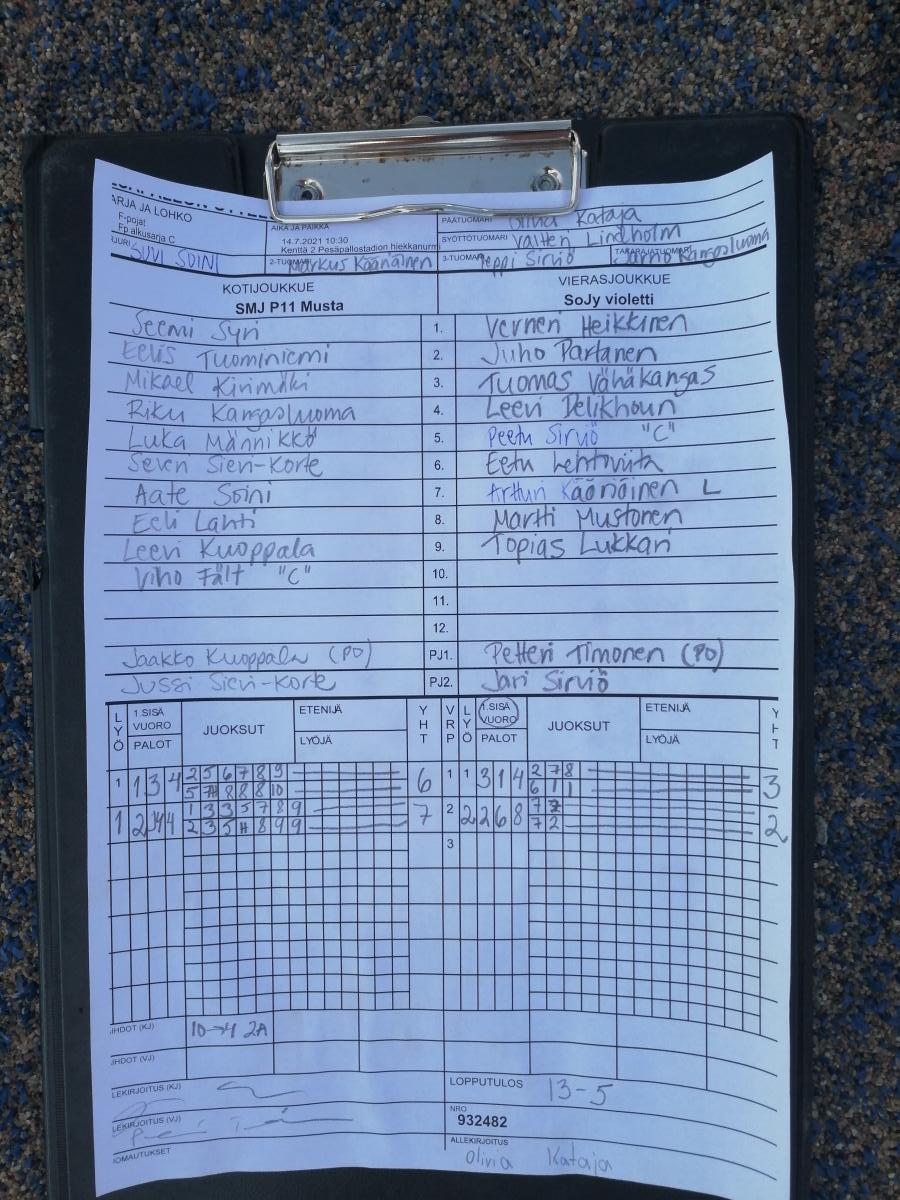 ARJA JA LOHKO
F-pojat
Fp alkusarja C
AIKA JA PAIKKA
14.7.2021 10:30
Kenttä 2 Pesäpallostadion hiekkanurm
PÄÄTUOMARI Olivia Kataja
SYÖTTÖTUOMARI Valtteri Lindholm
SUVI SOINI
2-TUOMARI Markus Käänäinen
3-TUOMARI Peppi Sirviö
TAKARAJATUOMARI Jarno Kangasluoma
KOTIJOUKKUE VIERASJOUKKUE
SMJ P11 Musta SoJy violetti
Seemi Syri 1. Verneri Heikkinen
Eelis Tuominiemi 2. Juho Partanen
Mikael Kirimäki 3. Tuomas Vähäkangas
Riku Kangasluoma 4. Leevi Delikhoun
Luka Männikkö 5. Peetu Sirviö "C"
Seven Sien-Korte 6. Eetu Lehtoviita
Aate Soini 7. Artturi Kääriäinen L
Eeli Lahti 8. Martti Mustonen
Leevi Kuoppala 9. Topias Lukkari
Viho Fält "C" 10.
11.
12.
Jaakko Kuoppala (PO) PJ1. Petteri Timonen (PO)
Jussi Sievi-Korte PJ2. Jari Sirviö
LYÖ 1.SISÄ VUORO PALOT JUOKSUT ETENIJÄ LYÖJÄ YHT VRP LYÖ 1.SISÄ VUORO PALOT JUOKSUT ETENIJÄ LYÖJÄ YHT
1 1 3 4 2 5 6 7 8 9 6 1 1 3 1 4 2 7 8 3
8 8 8 10 6 1 1
1 2 4 4 1 3 3 5 7 8 9 7 2 2 2 6 8 7 2 2
2 3 5 8 9 9 7 2
3
IHDOT (KJ) 10→4 2A
IHDOT (VJ)
LEKIRJOITUS (KJ)
LOPPUTULOS 13-5
LEKIRJOITUS (VJ)
NRO
932482
IOMAUTUKSET
ALLEKIRJOITUS
Olivia Kataja